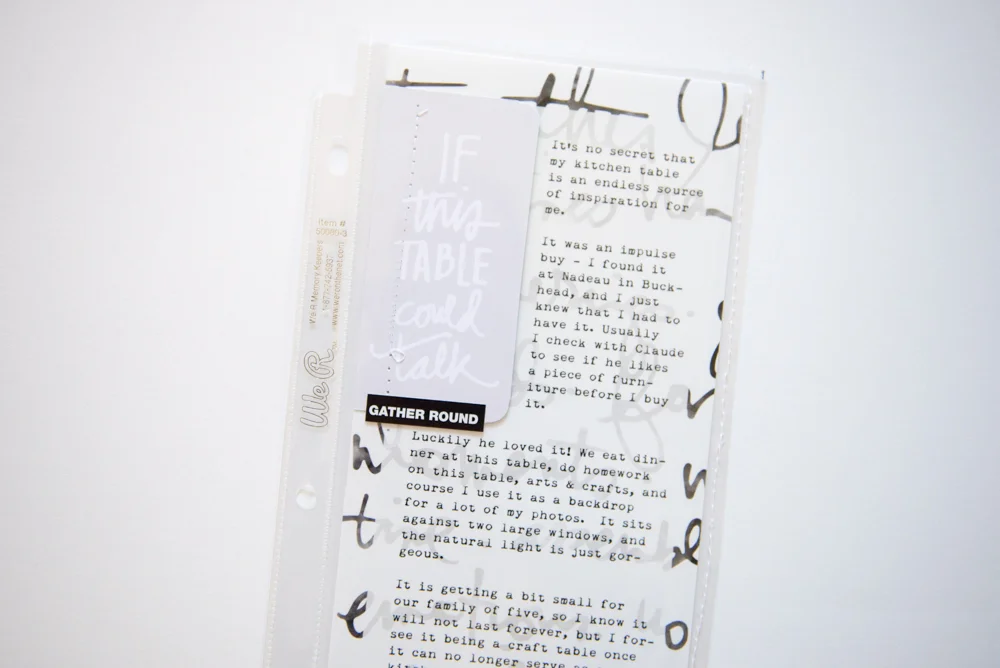 IF
this
TABLE
could
talk
GATHER ROUND
It's no secret that
my kitchen table
is an endless source
of inspiration for
me.
It was an impulse
buy - I found it
at Nadeau in Buck-
head, and I just
knew that I had to
have it. Usually
I check with Claude
to see if he likes
a piece of furn-
iture before I buy
it.
Luckily he loved it! We eat din-
ner at this table, do homework
on this table, arts & crafts, and
course I use it as a backdrop
for a lot of my photos. It sits
against two large windows, and
the natural light is just gor-
geous.
It is getting a bit small for
our family of five, so I know it
will not last forever, but I for-
see it being a craft table once
it can no longer serve as
We R
We R Memory Keepers
www.wermemorykeepers.com
Item #